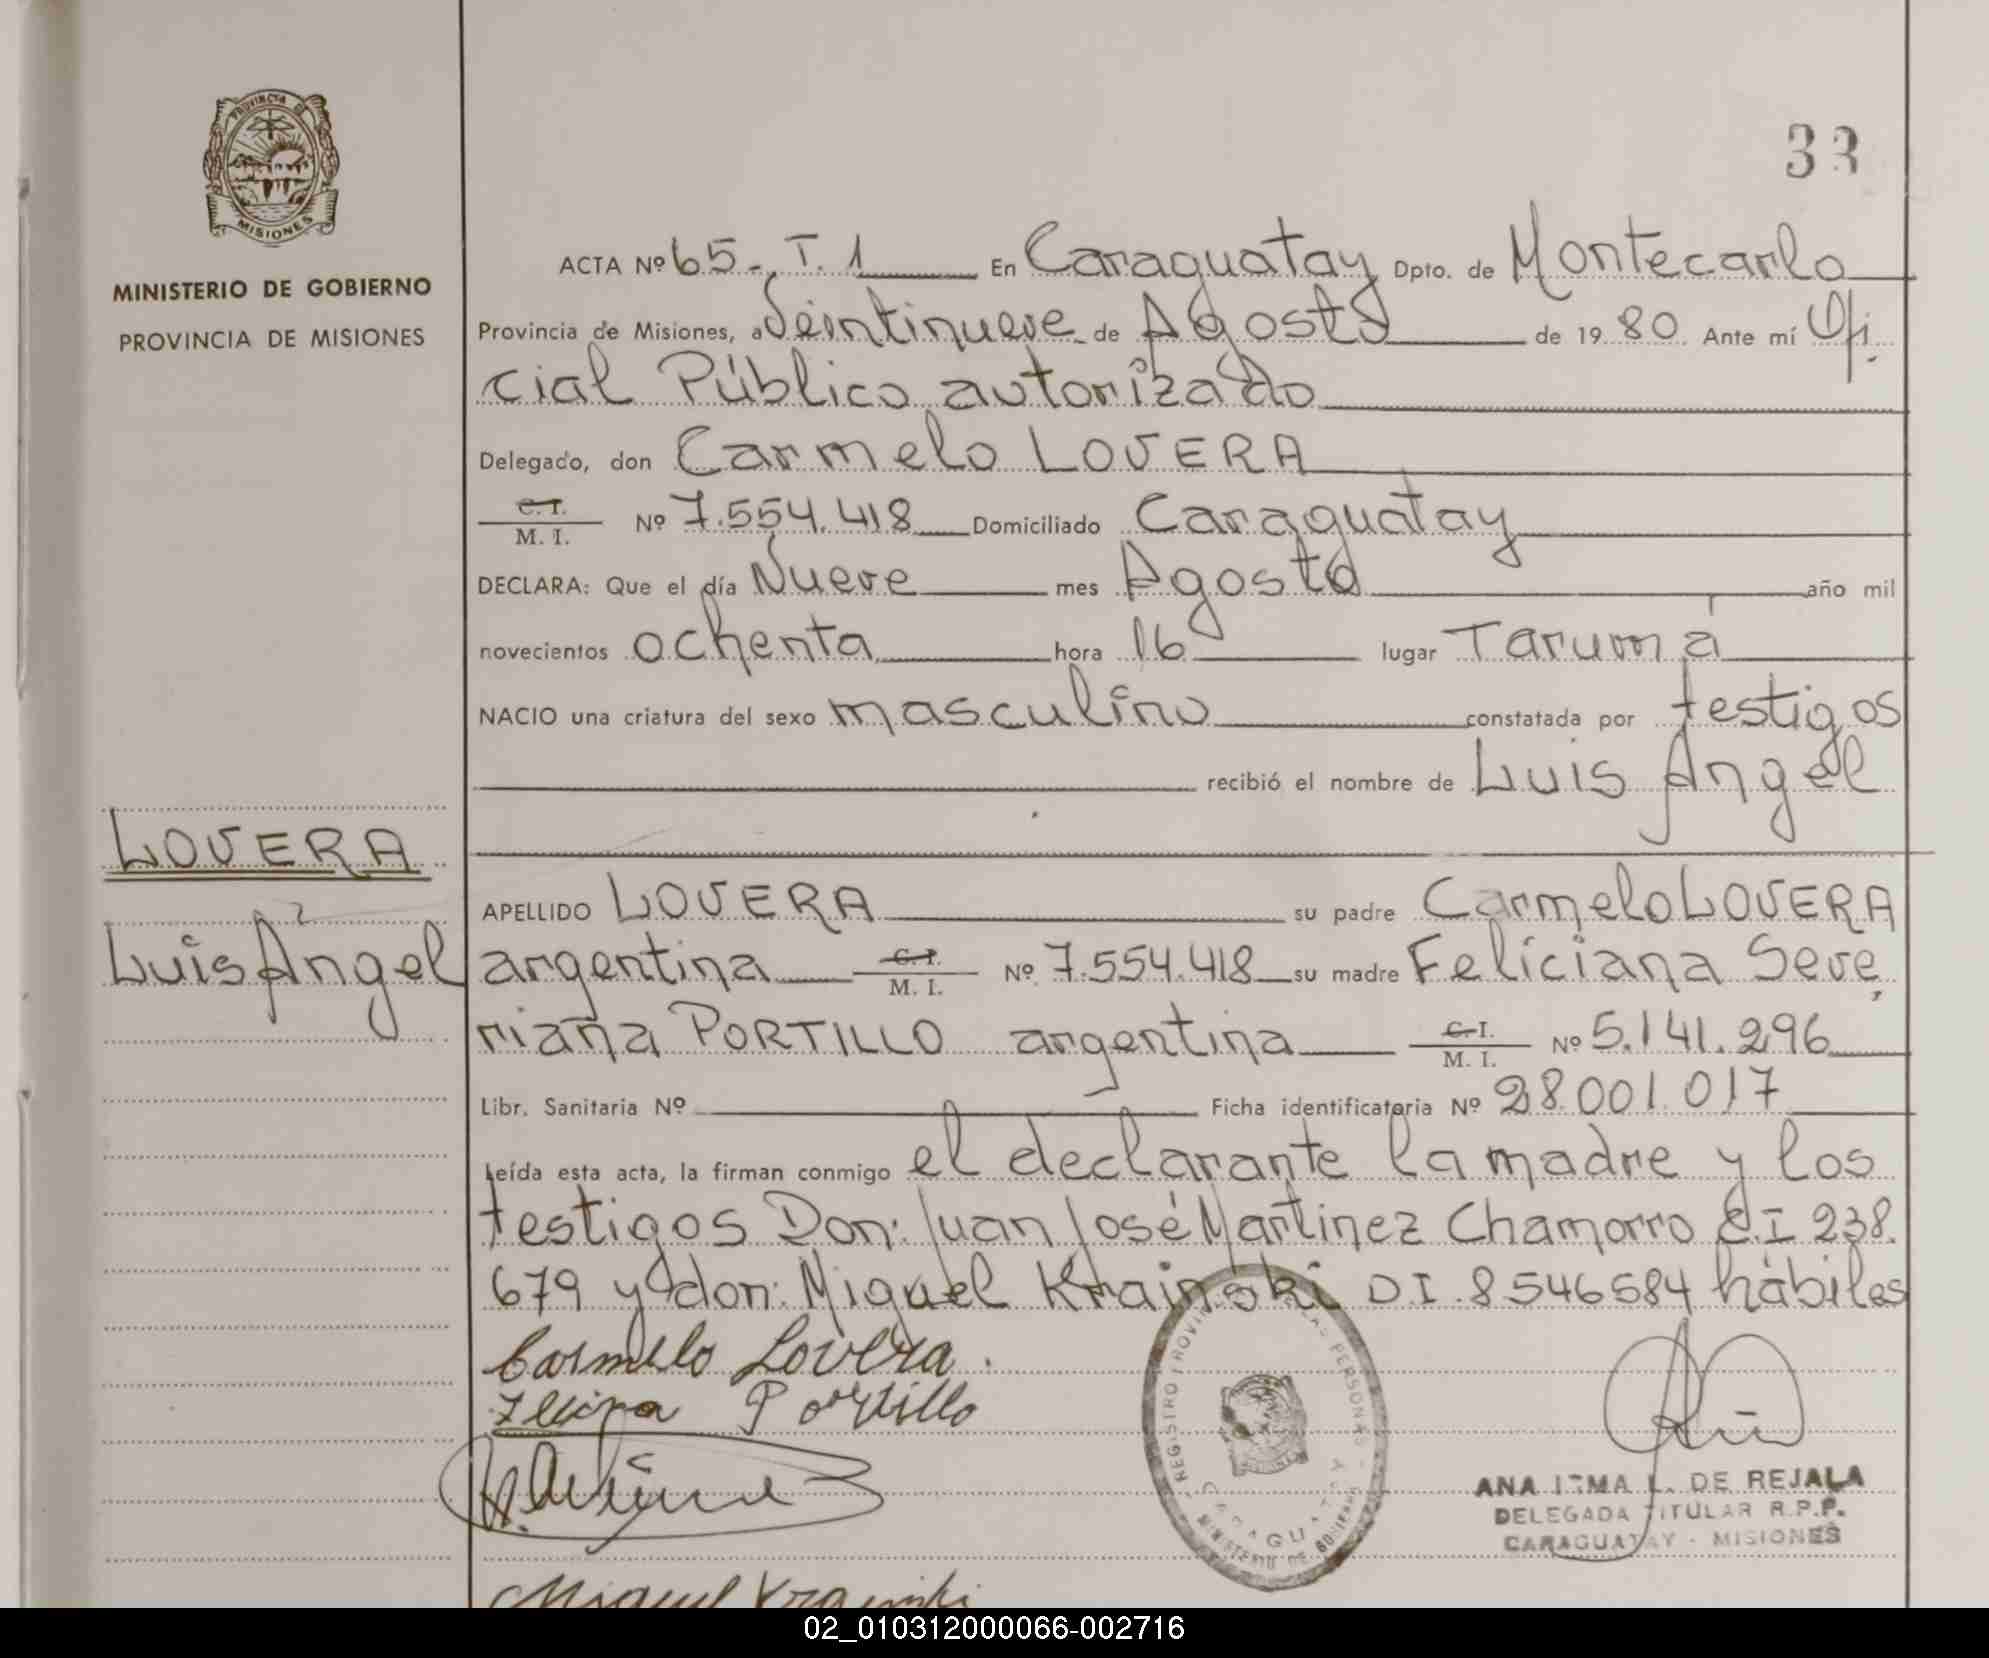 33
PROVINCIA DE
MISIONES
MINISTERIO DE GOBIERNO
PROVINCIA DE MISIONES
ACTA Nº 65-, T. 1 En Caraguatay Dpto. de Montecarlo
Provincia de Misiones, a Veintinueve de Agosto de 1980 Ante mí Ofi
cial Público autorizado
Delegado, don Carmelo LOVERA
C. I.
M. I. Nº 7.554.418 Domiciliado Caraguatay
DECLARA: Que el día Nueve mes Agosto año mil
novecientos ochenta hora 16 lugar Tarumá
NACIO una criatura del sexo masculino constatada por testigos
recibió el nombre de Luis Angel
LOVERA
Luis Angel
APELLIDO LOVERA su padre Carmelo LOVERA
argentina C. I. M. I. Nº 7.554.418 su madre Feliciana Seve
riana PORTILLO argentina C. I. M. I. Nº 5.141.296
Libr. Sanitaria Nº Ficha identificatoria Nº 28.001.017
Leída esta acta, la firman conmigo el declarante la madre y los
testigos Don: Juan José Martinez Chamorro C.I 238.
679 y don: Miguel Krainski D.I. 8546584 hábiles
Carmelo Lovera.
Portillo
Miguel Krainski
REGISTRO PROVINCIAL DE LAS PERSONAS
CARAGUATAY
MINISTERIO DE GOBIERNO
ANA IRMA L. DE REJALA
DELEGADA TITULAR R.P.P.
CARAGUATAY - MISIONES
02_010312000066-002716